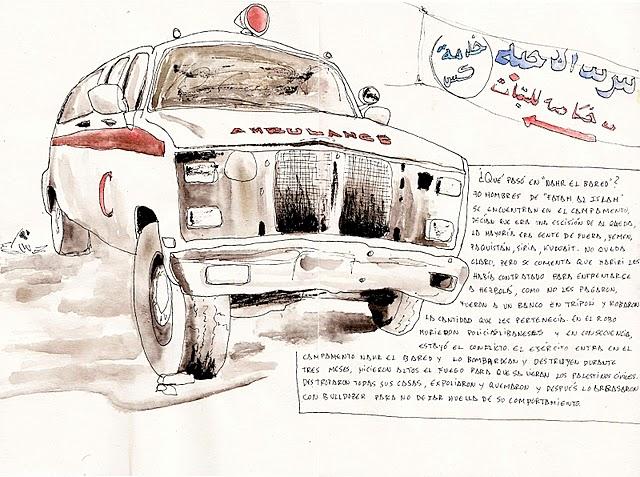 خدمة
AMBULANCE
¿QUÉ PASÓ EN "NAHR EL BARED"?
90 HOMBRES DE "FATAH AL ISLAM"
SE ENCUENTRAN EN EL CAMPAMENTO,
DECÍAN QUE ERA UNA ESCISIÓN DE AL QAEDA,
LA MAYORÍA ERA GENTE DE FUERA, YEMEN,
PAQUISTÁN, SIRIA, KUWAIT. NO QUEDA
CLARO, PERO SE COMENTA QUE HARIRI LES
HABÍA CONTRATADO PARA ENFRENTARSE
A HEZBOLÁ, COMO NO LES PAGARON,
FUERON A UN BANCO EN TRIPOLI Y ROBARON
LA CANTIDAD QUE LES PERTENECÍA. EN EL ROBO
MURIERON POLICÍAS LIBANESES Y EN CONSECUENCIA,
ESTAYÓ EL CONFLICTO. EL EJÉRCITO ENTRA EN EL
CAMPAMENTO NAHR EL BARED Y LO BOMBARDEAN Y DESTRUYEN DURANTE
TRES MESES, HICIERON ALTOS EL FUEGO PARA QUE SALIERAN LOS PALESTINOS CIVILES.
DESTROZARON TODAS SUS CASAS, EXPOLIARON Y QUEMARON Y DESPUÉS LO ARRASARON
CON BULLDOZER PARA NO DEJAR HUELLA DE SU COMPORTAMIENTO.